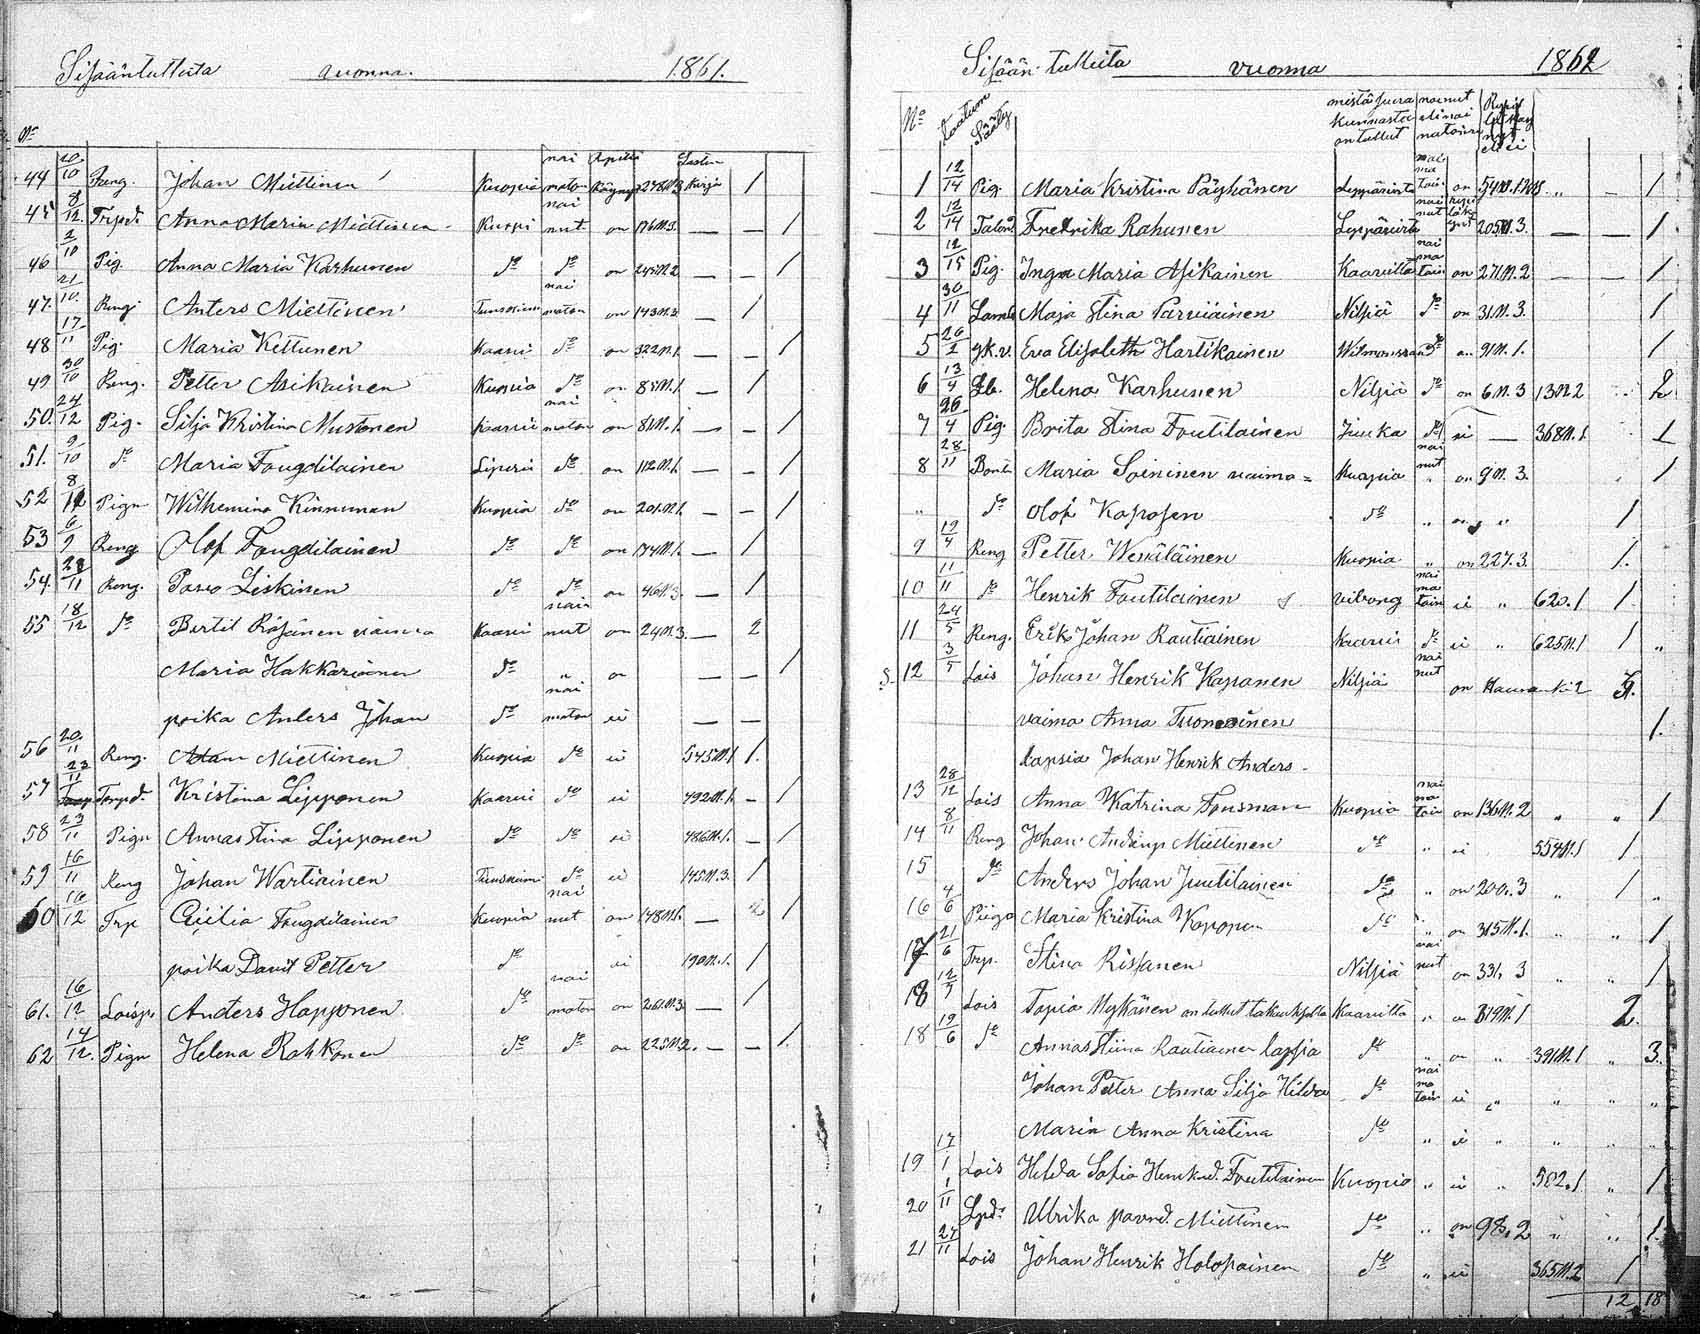 Sisääntulleita vuonna. 1861.
No
44 20/10 Reng. Johan Miettinen Kuopia nai maton Ripillä käynyt 278 N.3 Lasten kirja 1
45 8/12. Trpd. Anna Maria Miettinen Kuopi nai nut on 176 N.3. — — 1
46 2/10 Pig. Anna Maria Karhunen do do on 245 N.2 — — 1
47. 21/10. Reng Anters Miettinen nai maton on 143 N.3 — 1
48 17/11 Pig. Maria Kettunen Kaavi do on 322 N.1. — — 1
49 30/10 Reng. Petter Asikainen Kuopia do on 85 N.1 — 1
50. 24/12 Pig. Silja Kristina Mustonen Kaavi nai maton on 81 N.1. — — 1
51. 9/10 do Maria Fougdilainen Liperi do on 112 N.1. — — 1
52 8/12 Pign Wilhemina Kinnunen Kuopia do on 201 N.1. — — 1
53 6/9 Reng Olof Fougdilainen do do on 174 N.1. — 1
54. 28/11 Reng. Paavo Liskinen do do on 46 N.3. — 1
55 18/12 do Bertil Räsänen vaimo Kaavi nai nut on 24 N.3. — 2
Maria Hakkarainen do " on — — 1
poika Anters Johan do nai maton ei — —
56 20/11 Reng. Adam Miettinen Kuopia do ei 545 N.1 1.
57 23/11 Torpd. Kristina Lipponen Kaavi do ei 492 N.1. — 1
58 23/11 Pign Annastina Lipponen do do ei 486 N.1. — 1
59 16/11 Reng Johan Wartiainen do ei 145 N.3. 1
60 16/12 Trp Cecilia Fougdilainen Kuopia nai nut on 148 N.1. — 1
poika David Petter do ei 190 N.1. 1
61. 16/12 Loisp. Anders Happonen do nai maton on 261 N.3 — 1
62 14/12. Pign Helena Rahkonen do do on 225 N.2. — — 1.
Sisään tulleita vuonna 1862
No Daatum Sääty mistä seura kunnasta on tullut nainut eli nai matoin
1 12/14 Pig. Maria Kristina Päyhänen Leppävirta nai ma toin on — 1
2 12/14 Fredrika Rahunen Leppävirta nai nut 205 N.3. — — 1.
3 12/15 Pig. Inga Maria Asikainen Kaavilta nai ma toin on 271 N.2 — — 1
4 30/11 Maja Stina Parviainen Nilsiä do on 31 N.3. 1
5 26/2 Eva Elisabeth Hartikainen do on 91 N.1. 1
6 13/4 Helena Karhunen Nilsiä do on 6 N.3 13 N.2 2
7 26/4 Pig. Brita Stina Foutilainen Juuka do ei — 368 N.1. 1
8 28/11 Maria Soininen vaimo = Kuopia nai nut on 9 N.3. 1
" do Olof Kaposen do " on " 1
9 12/4 Reng Petter Wenäläinen Kuopia " on 227.3. 1.
10 11/11 do Henrik Foutilainen viborg nai ma toin ei " 620.1 1.
11 24/5 Reng. Erik Johan Rautiainen Kaavi do ei " 625 N.1 1 "
12 3/5 Lois Johan Henrik Kaponen Nilsiä nai nut on
vaimo Anna Tuomainen 1.
lapsia Johan Henrik Anders
13 28/12 Lois Anna Katrina Fonsman Kuopia nai ma toin on 136 N.2 " " 1
14 8/11 Reng Johan Miettinen do " ei 554 N.1 1
15 do Anders Johan Juutilainen do " on 200.3 " 1 "
16 4/6 Piiga Maria Kristina Kaponen do " on 315 N.1. " " 1
17 21/6 Trp. Stina Rissanen Nilsiä nai nut on 331. 3 " " 1
18 12/7 Lois Tapia Mykänen on tullut Kaavilta " on 319 N.1 2.
18 19/6 do Annastiina Rautiainen lapsia do " on " 391 N.1 " 3.
Johan Petter Anna Silja Hilda do nai ma toin ei " " " "
Maria Anna Kristina do " ei " " " "
19 17/1 Lois Hilda Sofia Henrikd. Foutilainen Kuopio " ei " 582.1 " 1
20 1/11 Ulrika Paavd. Miettinen do " on 98.2 " " 1.
21 27/11 Lois Johan Henrik Holopainen do " ei 365 N.2 1
12 18